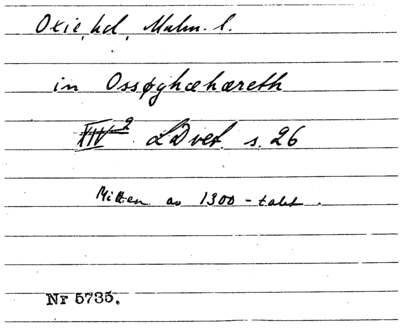 Oxie, hd, Malm. l.
in Ossøghæhæreth
XIV 2 LDvet s. 26
Mitten av 1300-talet.
Nr 5735.